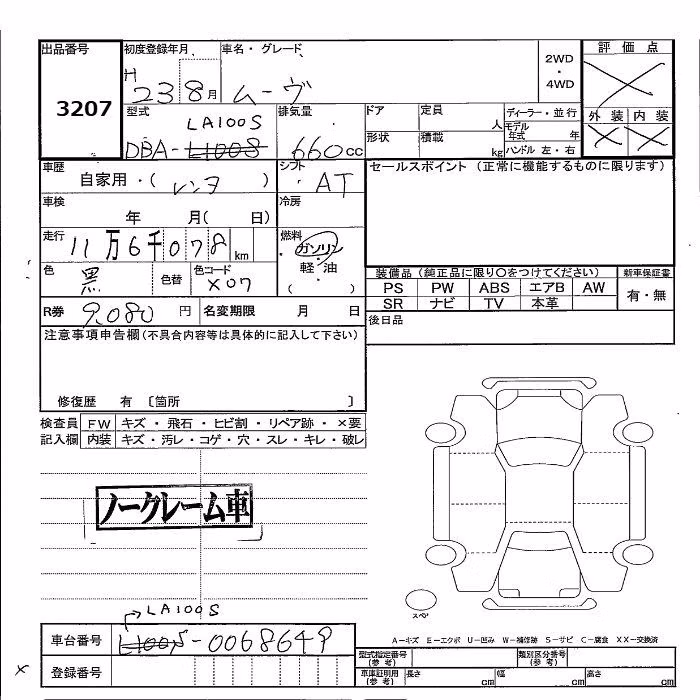 出品番号
3207
初度登録年月
H 23 8月
車名・グレード
ムーヴ
2WD
・
4WD
評価点
外装 内装
型式
LA100S
DBA-L100S
排気量
660cc
ドア
定員
人
形状
積載
kg
ディーラー・並行
モデル年式 年
ハンドル 左・右
車歴
自家用・( レンタ )
シフト
AT
セールスポイント(正常に機能するものに限ります)
車検
年 月( 日)
冷房
走行
11万6千078km
燃料
ガソリン
軽・油
( )
色
黒
色替
色コード
X07
装備品(純正品に限り〇をつけてください)
新車保証書
PS PW ABS エアB AW
SR ナビ TV 本革
有・無
R券 9,080 円
名変期限 月 日
後日品
注意事項申告欄(不具合内容等は具体的に記入して下さい)
修復歴 有 〔箇所 〕
検査員記入欄
FW キズ・飛石・ヒビ割・リペア跡・×要
内装 キズ・汚レ・コゲ・穴・スレ・キレ・破レ
ノークレーム車
スペア
A-キズ E-エクボ U-凹み W-補修跡 S-サビ C-腐食 XX-交換済
→LA100S
車台番号 L100S-0068649
登録番号
型式指定番号(参考)
類別区分番号(参考)
車庫証明用(参考) 長さ cm 幅 cm 高さ cm